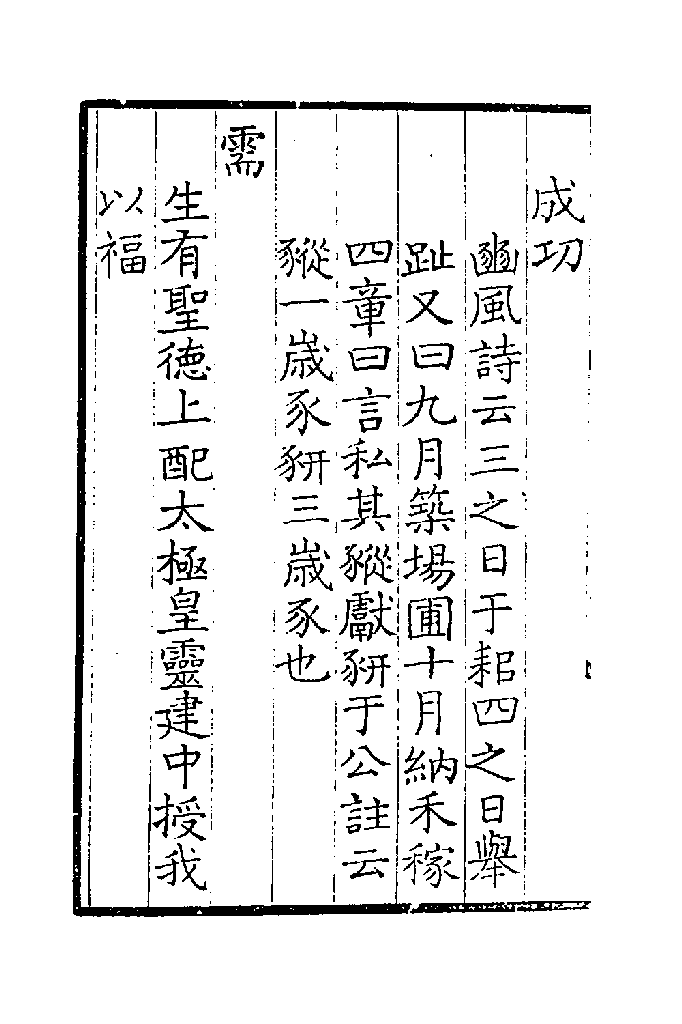 成功
豳風詩云三之日于耜四之日舉
趾又曰九月築場圃十月納禾稼
四章曰言私其豵獻豜于公註云
豵一歲豕豜三歲豕也
需
生有聖德上配太極皇靈建中授我
以福